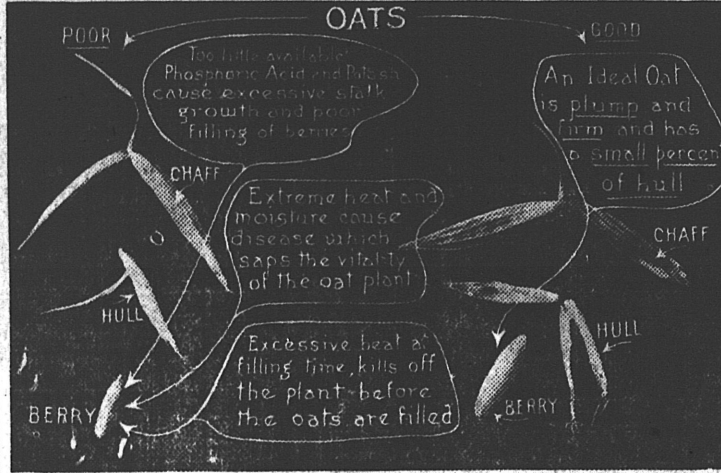 OATS
POOR
GOOD
Too little available
Phosphoric Acid and Potash
cause excessive stalk
growth and poor
filling of berries
An Ideal Oat
is plump and
firm and has
a small percent
of hull
CHAFF
Extreme heat and
moisture cause
disease which
saps the vitality
of the oat plant
CHAFF
HULL
Excessive heat at
filling time, kills off
the plant before
the oats are filled
HULL
BERRY
BERRY